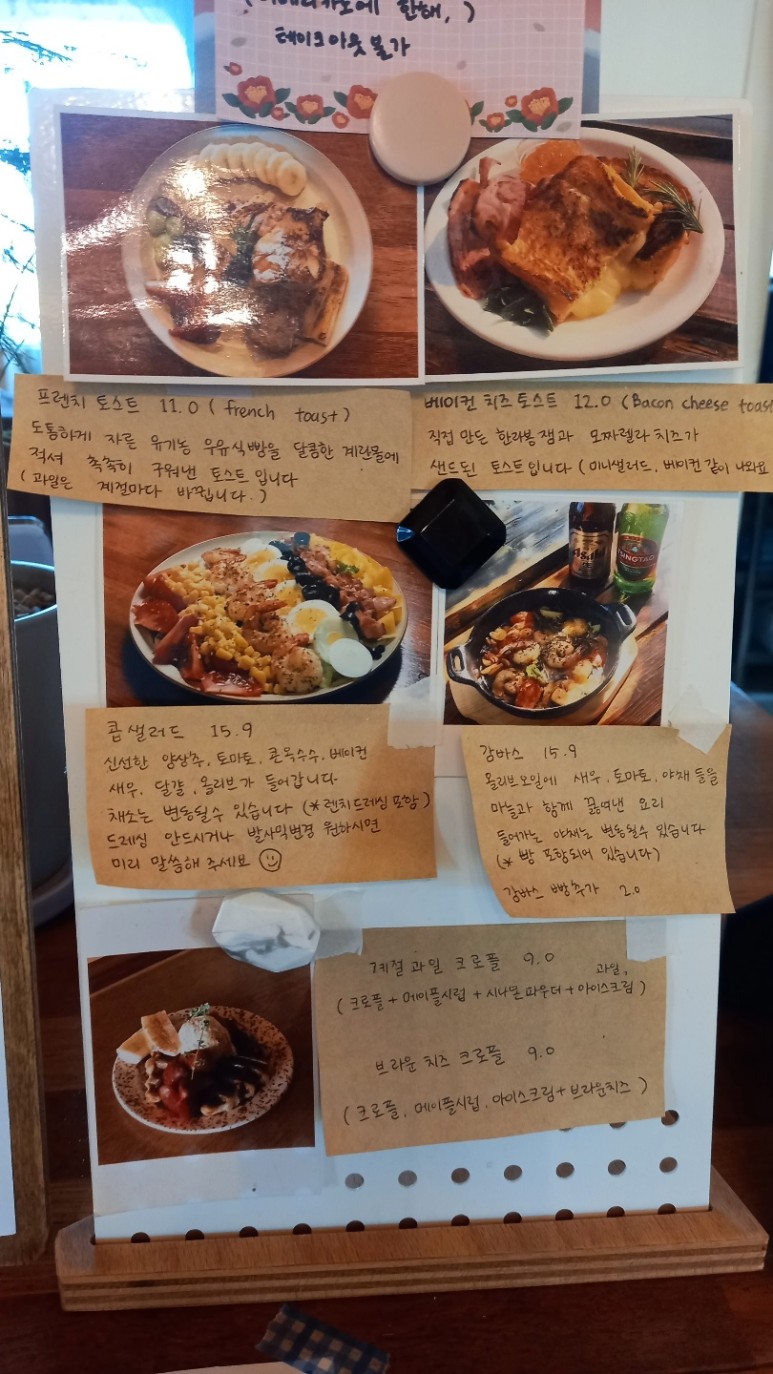 한해, )
테이크아웃 불가
프렌치 토스트 11.0 ( french toast )
도톰하게 자른 유기농 우유식빵을 달콤한 계란물에
적셔 촉촉히 구워낸 토스트입니다
( 과일은 계절마다 바뀝니다. )
베이컨 치즈토스트 12.0 (Bacon cheese toast
직접 만든 한라봉잼과 모짜렐라 치즈가
샌드된 토스트입니다 ( 미니샐러드, 베이컨 같이 나와요
Asahi
TSINGTAO
콥샐러드 15.9
신선한 양상추, 토마토, 콘옥수수, 베이컨
새우, 달걀, 올리브가 들어갑니다
채소는 변동될수 있습니다 (*렌치드레싱 포함)
드레싱 안드시거나 발사믹변경 원하시면
미리 말씀해 주세요
감바스 15.9
올리브오일에 새우, 토마토, 야채 등을
마늘과 함께 끓여낸 요리
들어가는 야채는 변동될수 있습니다
(* 빵 포함되어 있습니다)
감바스 빵추가 2.0
계절 과일 크로플 9.0
과일,
( 크로플 + 메이플시럽 + 시나몬 파우더 + 아이스크림 )
브라운 치즈 크로플 9.0
( 크로플, 메이플시럽, 아이스크림 + 브라운치즈 )